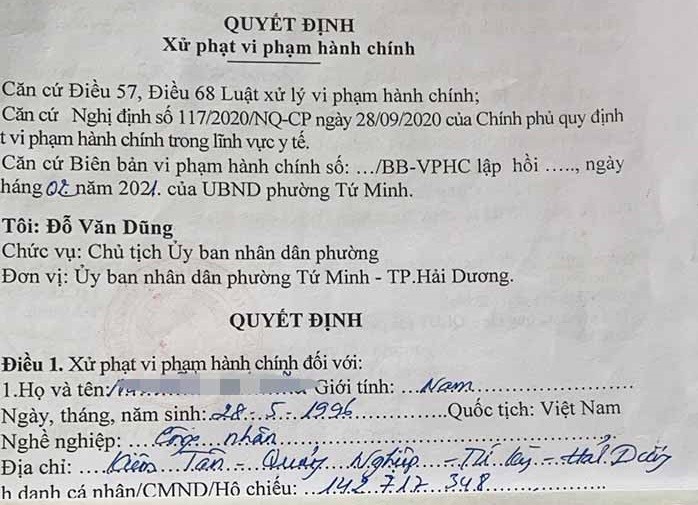 QUYẾT ĐỊNH
Xử phạt vi phạm hành chính
Căn cứ Điều 57, Điều 68 Luật xử lý vi phạm hành chính;
Căn cứ Nghị định số 117/2020/NQ-CP ngày 28/09/2020 của Chính phủ quy định
t vi phạm hành chính trong lĩnh vực y tế.
Căn cứ Biên bản vi phạm hành chính số: .../BB-VPHC lập hồi ....., ngày
háng 02 năm 2021. của UBND phường Tứ Minh.
Tôi: Đỗ Văn Dũng
Chức vụ: Chủ tịch Ủy ban nhân dân phường
Đơn vị: Ủy ban nhân dân phường Tứ Minh - TP.Hải Dương.
QUYẾT ĐỊNH
Điều 1. Xử phạt vi phạm hành chính đối với:
1.Họ và tên: Giới tính: ...Nam
Ngày, tháng, năm sinh: 28 - 5 - 1996 Quốc tịch: Việt Nam
Nghề nghiệp: ...Công nhân
Địa chỉ: Tân - Quảng Nghiệp - Tứ Kỳ - Hải Dương
h danh cá nhân/CMND/Hộ chiếu: ...142 717 348